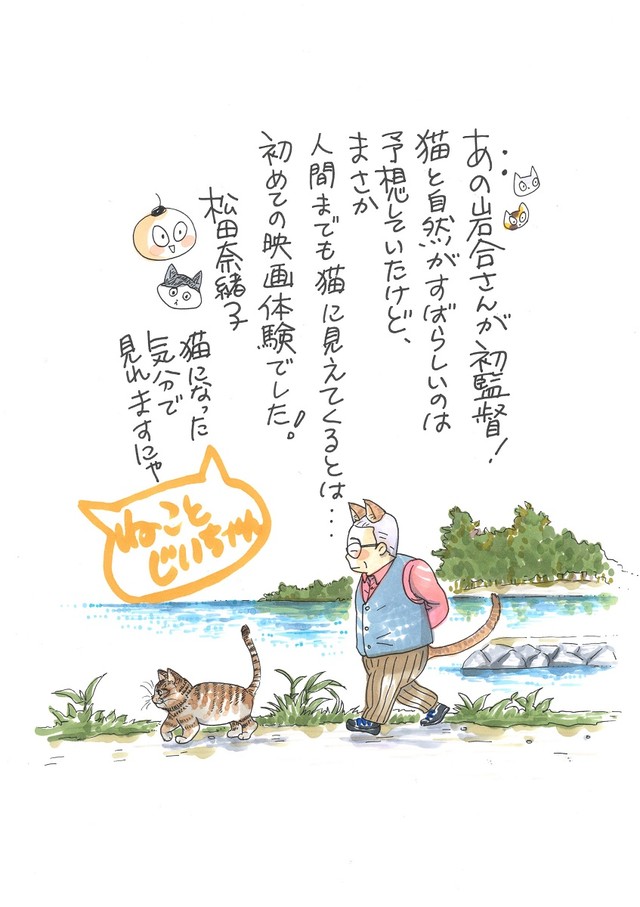 あの岩合さんが初監督!
猫と自然がすばらしいのは
予想していたけど、
まさか
人間までも猫に見えてくるとは…
初めての映画体験でした。!
松田奈緒子
猫になった
気分で
見れますにゃ
ねこと
じいちゃん